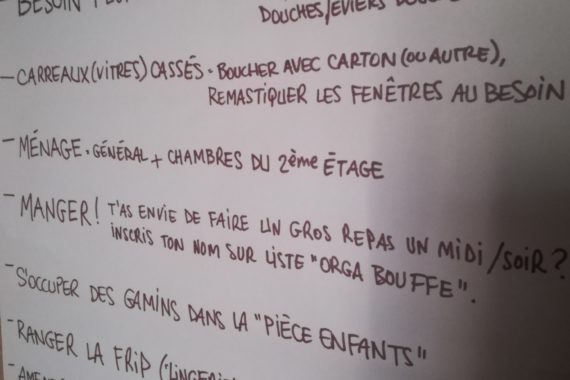 BESOIN
DOUCHES/ÉVIERS
- CARREAUX (VITRES) CASSÉS • BOUCHER AVEC CARTON (OU AUTRE),
REMASTIQUER LES FENÊTRES AU BESOIN
- MÉNAGE • GÉNÉRAL + CHAMBRES DU 2ème ÉTAGE
- MANGER! T'AS ENVIE DE FAIRE UN GROS REPAS UN MIDI/SOIR?
INSCRIS TON NOM SUR LISTE "ORGA BOUFFE".
- S'OCCUPER DES GAMINS DANS LA "PIÈCE ENFANTS"
- RANGER LA FRIP